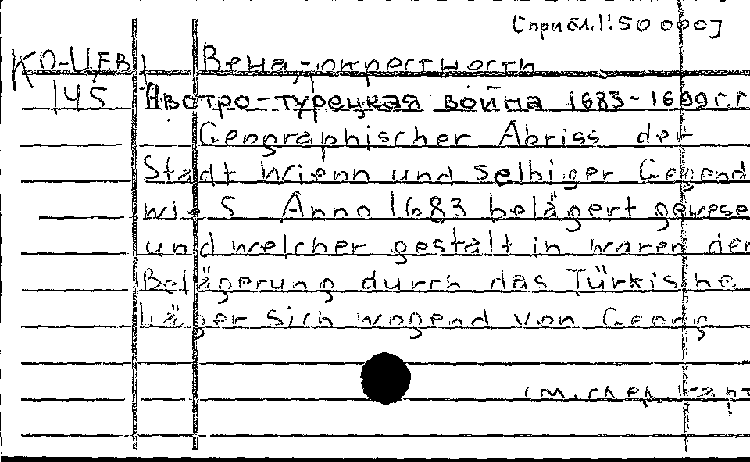 [прибл.1:50 000]
Ко-ЦЕВ Вена,-окрестности
145 Австро-турецкая война 1683-1699г.г
Geographischer Abriss der
Stadt Wienn und selbiger Gegend
wie S Anno 1683 belägert gewese
und welcher gestalt in waren der
Belägerung durch das Türkische
Läger sich wogend von Georg